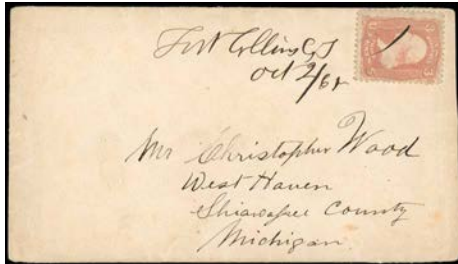 Fort Collins C.T
Oct 2/65
Mr Christopher Wood
West Haven
Shiawassee County
Michigan
3